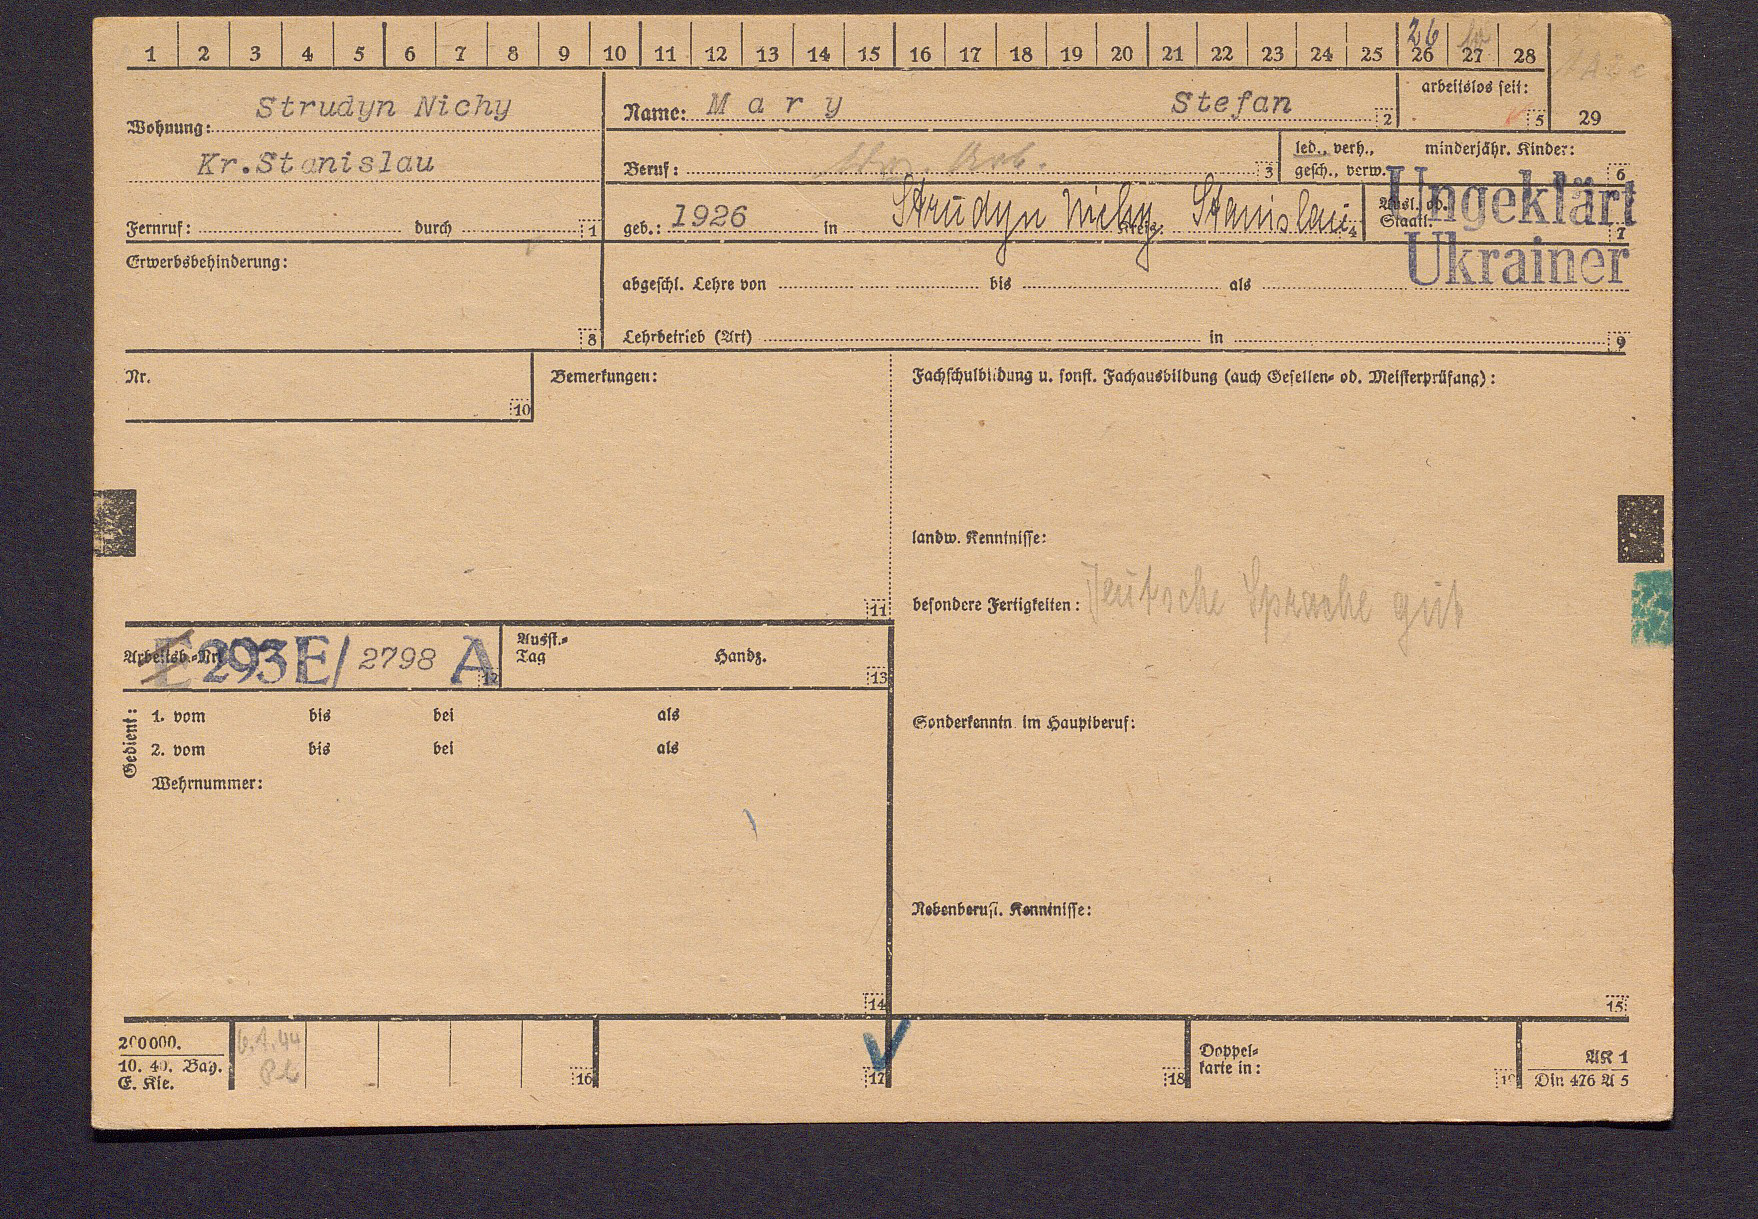 26
1 2 3 4 5 6 7 8 9 10 11 12 13 14 15 16 17 18 19 20 21 22 23 24 25 26 27 28
Wohnung: Strudyn Nichy
Kr. Stanislau
Fernruf: durch 1
Name: Mary Stefan 2
arbeitslos seit: 5
29
Beruf: Arb. 3
led., verh., minderjähr. Kinder:
gesch., verw. 6
geb.: 1926 in Strudyn Nichy Kreis: Stanislau 4
Ausl. od. Staatl. 7
Ungeklärt
Ukrainer
Erwerbsbehinderung:
8
abgeschl. Lehre von bis als
Lehrbetrieb (Art) in 9
Nr.
10
Bemerkungen:
11
Fachschulbildung u. sonst. Fachausbildung (auch Gesellen- od. Meisterprüfung):
landw. Kenntnisse:
besondere Fertigkeiten: Deutsche Sprache gut
Sonderkenntn. im Hauptberuf:
Nebenberufl. Kenntnisse:
15
Arbeitsb.-Nr. E 293E/ 2798 A 12
Ausst.-
Tag Handz.
13
Gedient:
1. vom bis bei als
2. vom bis bei als
Wehrnummer:
14
200000.
10. 40. Bay.
E. Kie.
6.1.44
16
17
18
Doppel-
karte in:
19
AK 1
Din 476 A 5